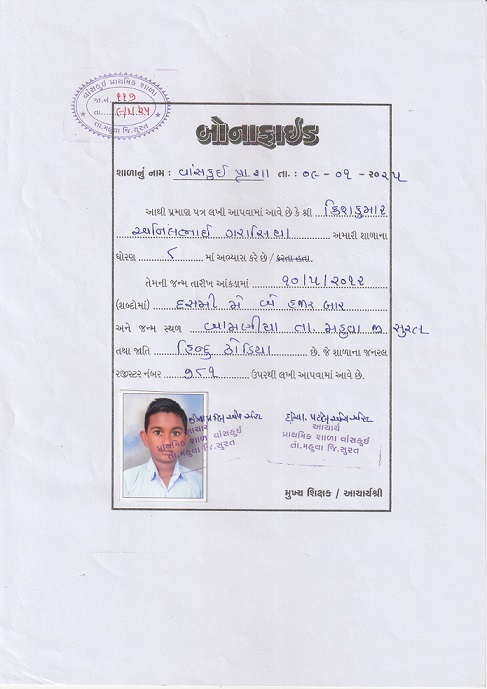 વાંસકુઇ પ્રાથમિક શાળા
જા.નં. ૧૧૭
તા.
તા.મહુવા જિ.સુરત
બોનાફાઈડ
શાળાનું નામ : વાંસકુઈ પ્રા.શા તા. : ૦૯ - ૦૧ - ૨૦૨૫
આથી પ્રમાણ પત્ર લખી આપવામાં આવે છે કે શ્રી ક્રિશકુમાર
અનિલભાઈ ગરાસિયા અમારી શાળાના
ધોરણ ૮ માં અભ્યાસ કરે છે / કરતા હતા.
તેમની જન્મ તારીખ આંકડામાં ૧૦/૫/૨૦૧૨
(શબ્દોમાં) દસમી મે બે હજાર બાર
અને જન્મ સ્થળ બામણીયા તા. મહુવા જી. સુરત
તથા જાતિ હિન્દુ ધોડિયા છે. જે શાળાના જનરલ
રજીસ્ટર નંબર ૭૮૧ ઉપરથી લખી આપવામાં આવે છે.
આચાર્ય
પ્રાથમિક શાળા વાંસકુઇ
તા.મહુવા જિ.સુરત
આચાર્ય
પ્રાથમિક શાળા વાંસકુઇ
તા.મહુવા જિ.સુરત
મુખ્ય શિક્ષક / આચાર્યશ્રી